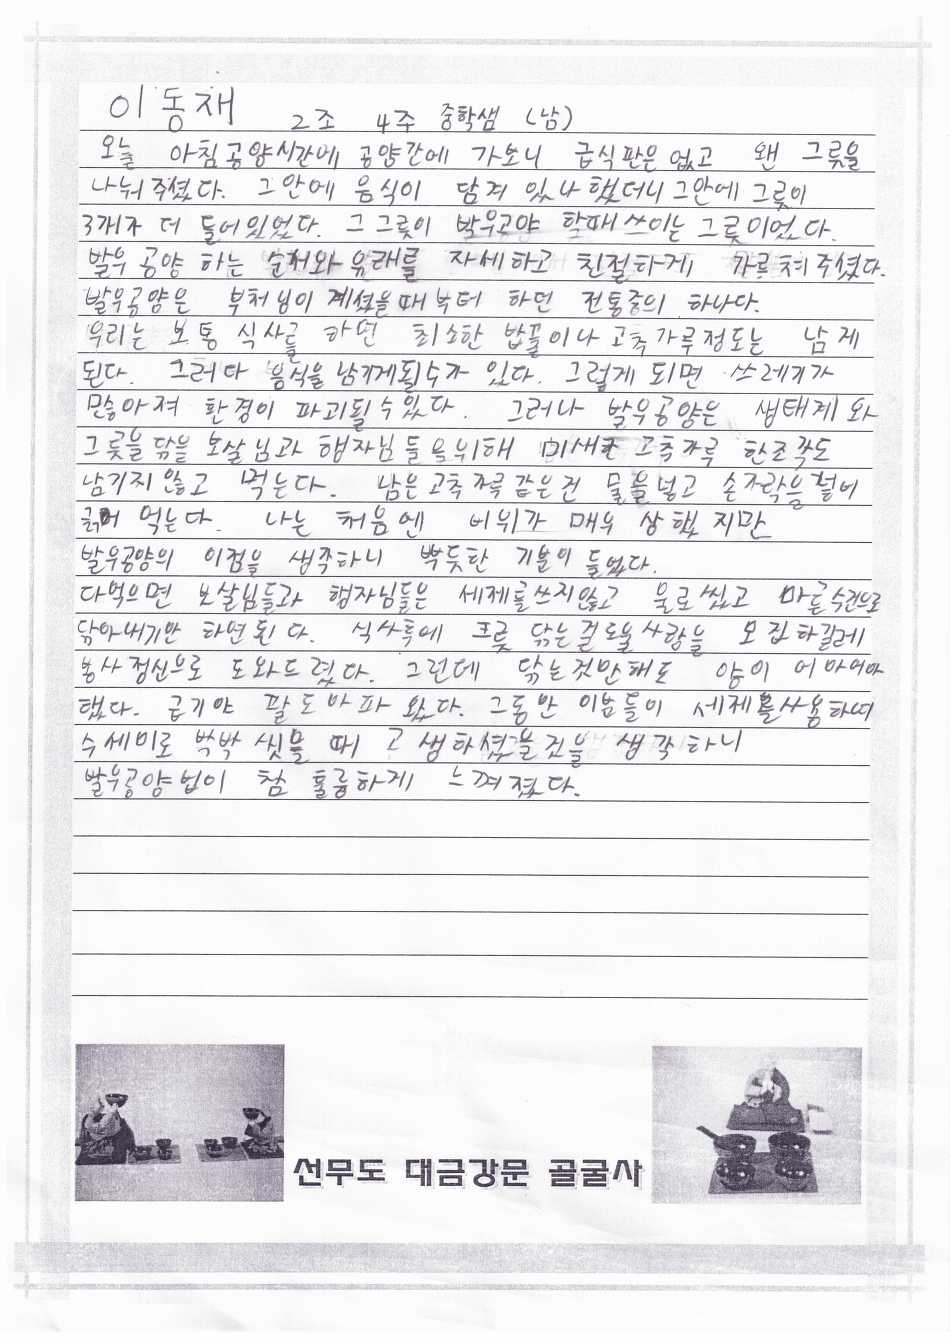 이동재 2조 4주 중학생 (남)
오늘 아침공양시간에 공양간에 가보니 급식판은 없고 왠 그릇을
나눠주셨다. 그안에 음식이 담겨 있나 했더니 그안에 그릇이
3개나 더 들어있었다. 그 그릇이 발우공양 할때 쓰이는 그릇이었다.
발우 공양 하는 순서와 유래를 자세하고 친절하게 가르쳐주셨다.
발우공양은 부처님이 계셨을때부터 하던 전통중의 하나다.
우리는 보통 식사를 하면 최소한 밥풀이나 고춧가루정도는 남게
된다. 그러다 음식을 남기게될수가 있다. 그렇게 되면 쓰레기가
많아져 환경이 파괴될수있다. 그러나 발우공양은 생태계와
그릇을 닦을 보살님과 행자님 들을위해 미세한 고춧가루 한조각도
남기지 않고 먹는다. 남은 고춧가루 같은건 물을 넣고 손가락을 넣어
긁어 먹는다. 나는 처음엔 비위가 매우 상했지만
발우공양의 이점을 생각하니 뿌듯한 기분이 들었다.
다먹으면 보살님들과 행자님들은 세제를쓰지않고 물로씻고 마른수건으로
닦아내기만 하면된다. 식사후에 그릇 닦는걸 도울사람을 모집하길레
봉사정신으로 도와드렸다. 그런데 닦는것만해도 양이 어마어마
했다. 급기야 팔도아파 왔다. 그동안 이분들이 세제를사용하며
수세미로 박박 씻을 때 고생하셨을것을 생각하니
발우공양법이 참 훌륭하게 느껴졌다.
선무도 대금강문 골굴사